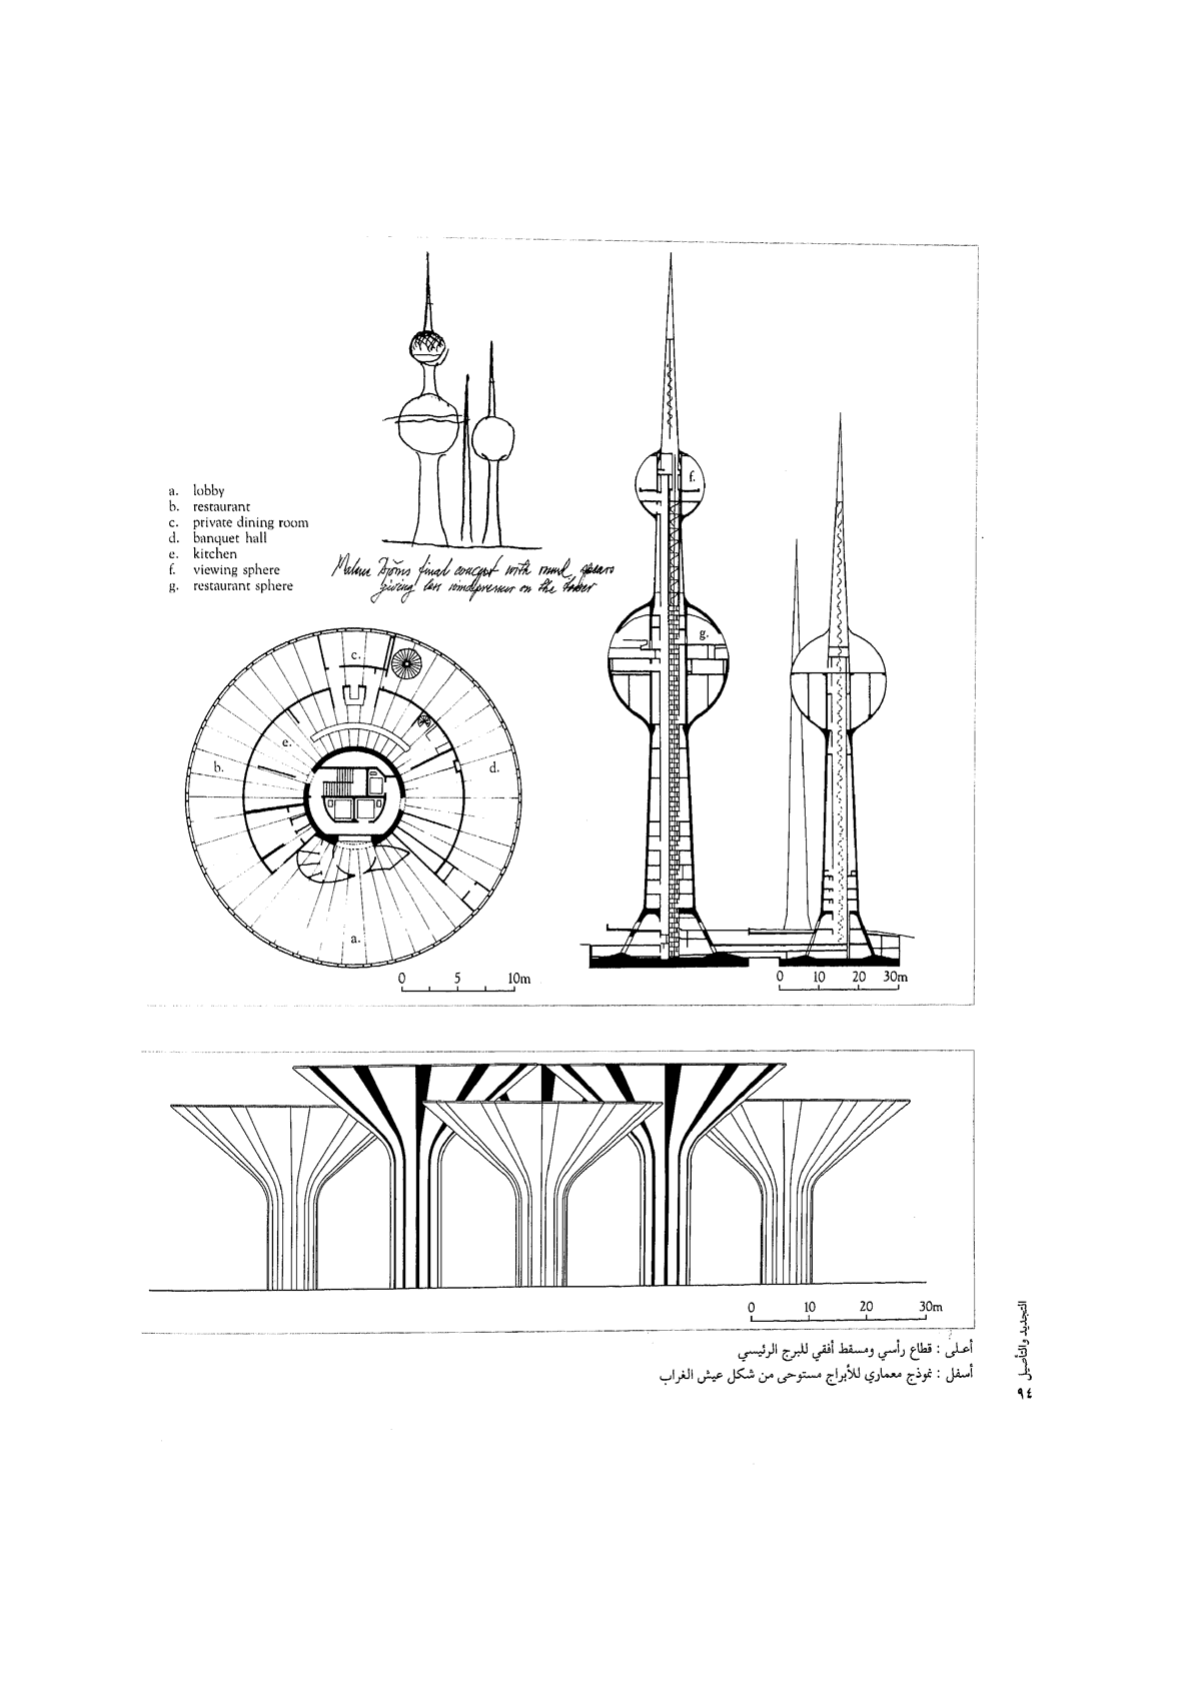 a. lobby
b. restaurant
c. private dining room
d. banquet hall
e. kitchen
f. viewing sphere
g. restaurant sphere
final concept with
giving less on the tower
f.
g.
c.
e.
b.
d.
a.
0 5 10m
0 10 20 30m
0 10 20 30m
أعلى : قطاع رأسي ومسقط أفقي للبرج الرئيسي
أسفل : نموذج معماري للأبراج مستوحى من شكل عيش الغراب
التجديد والتأصيل ٩٤